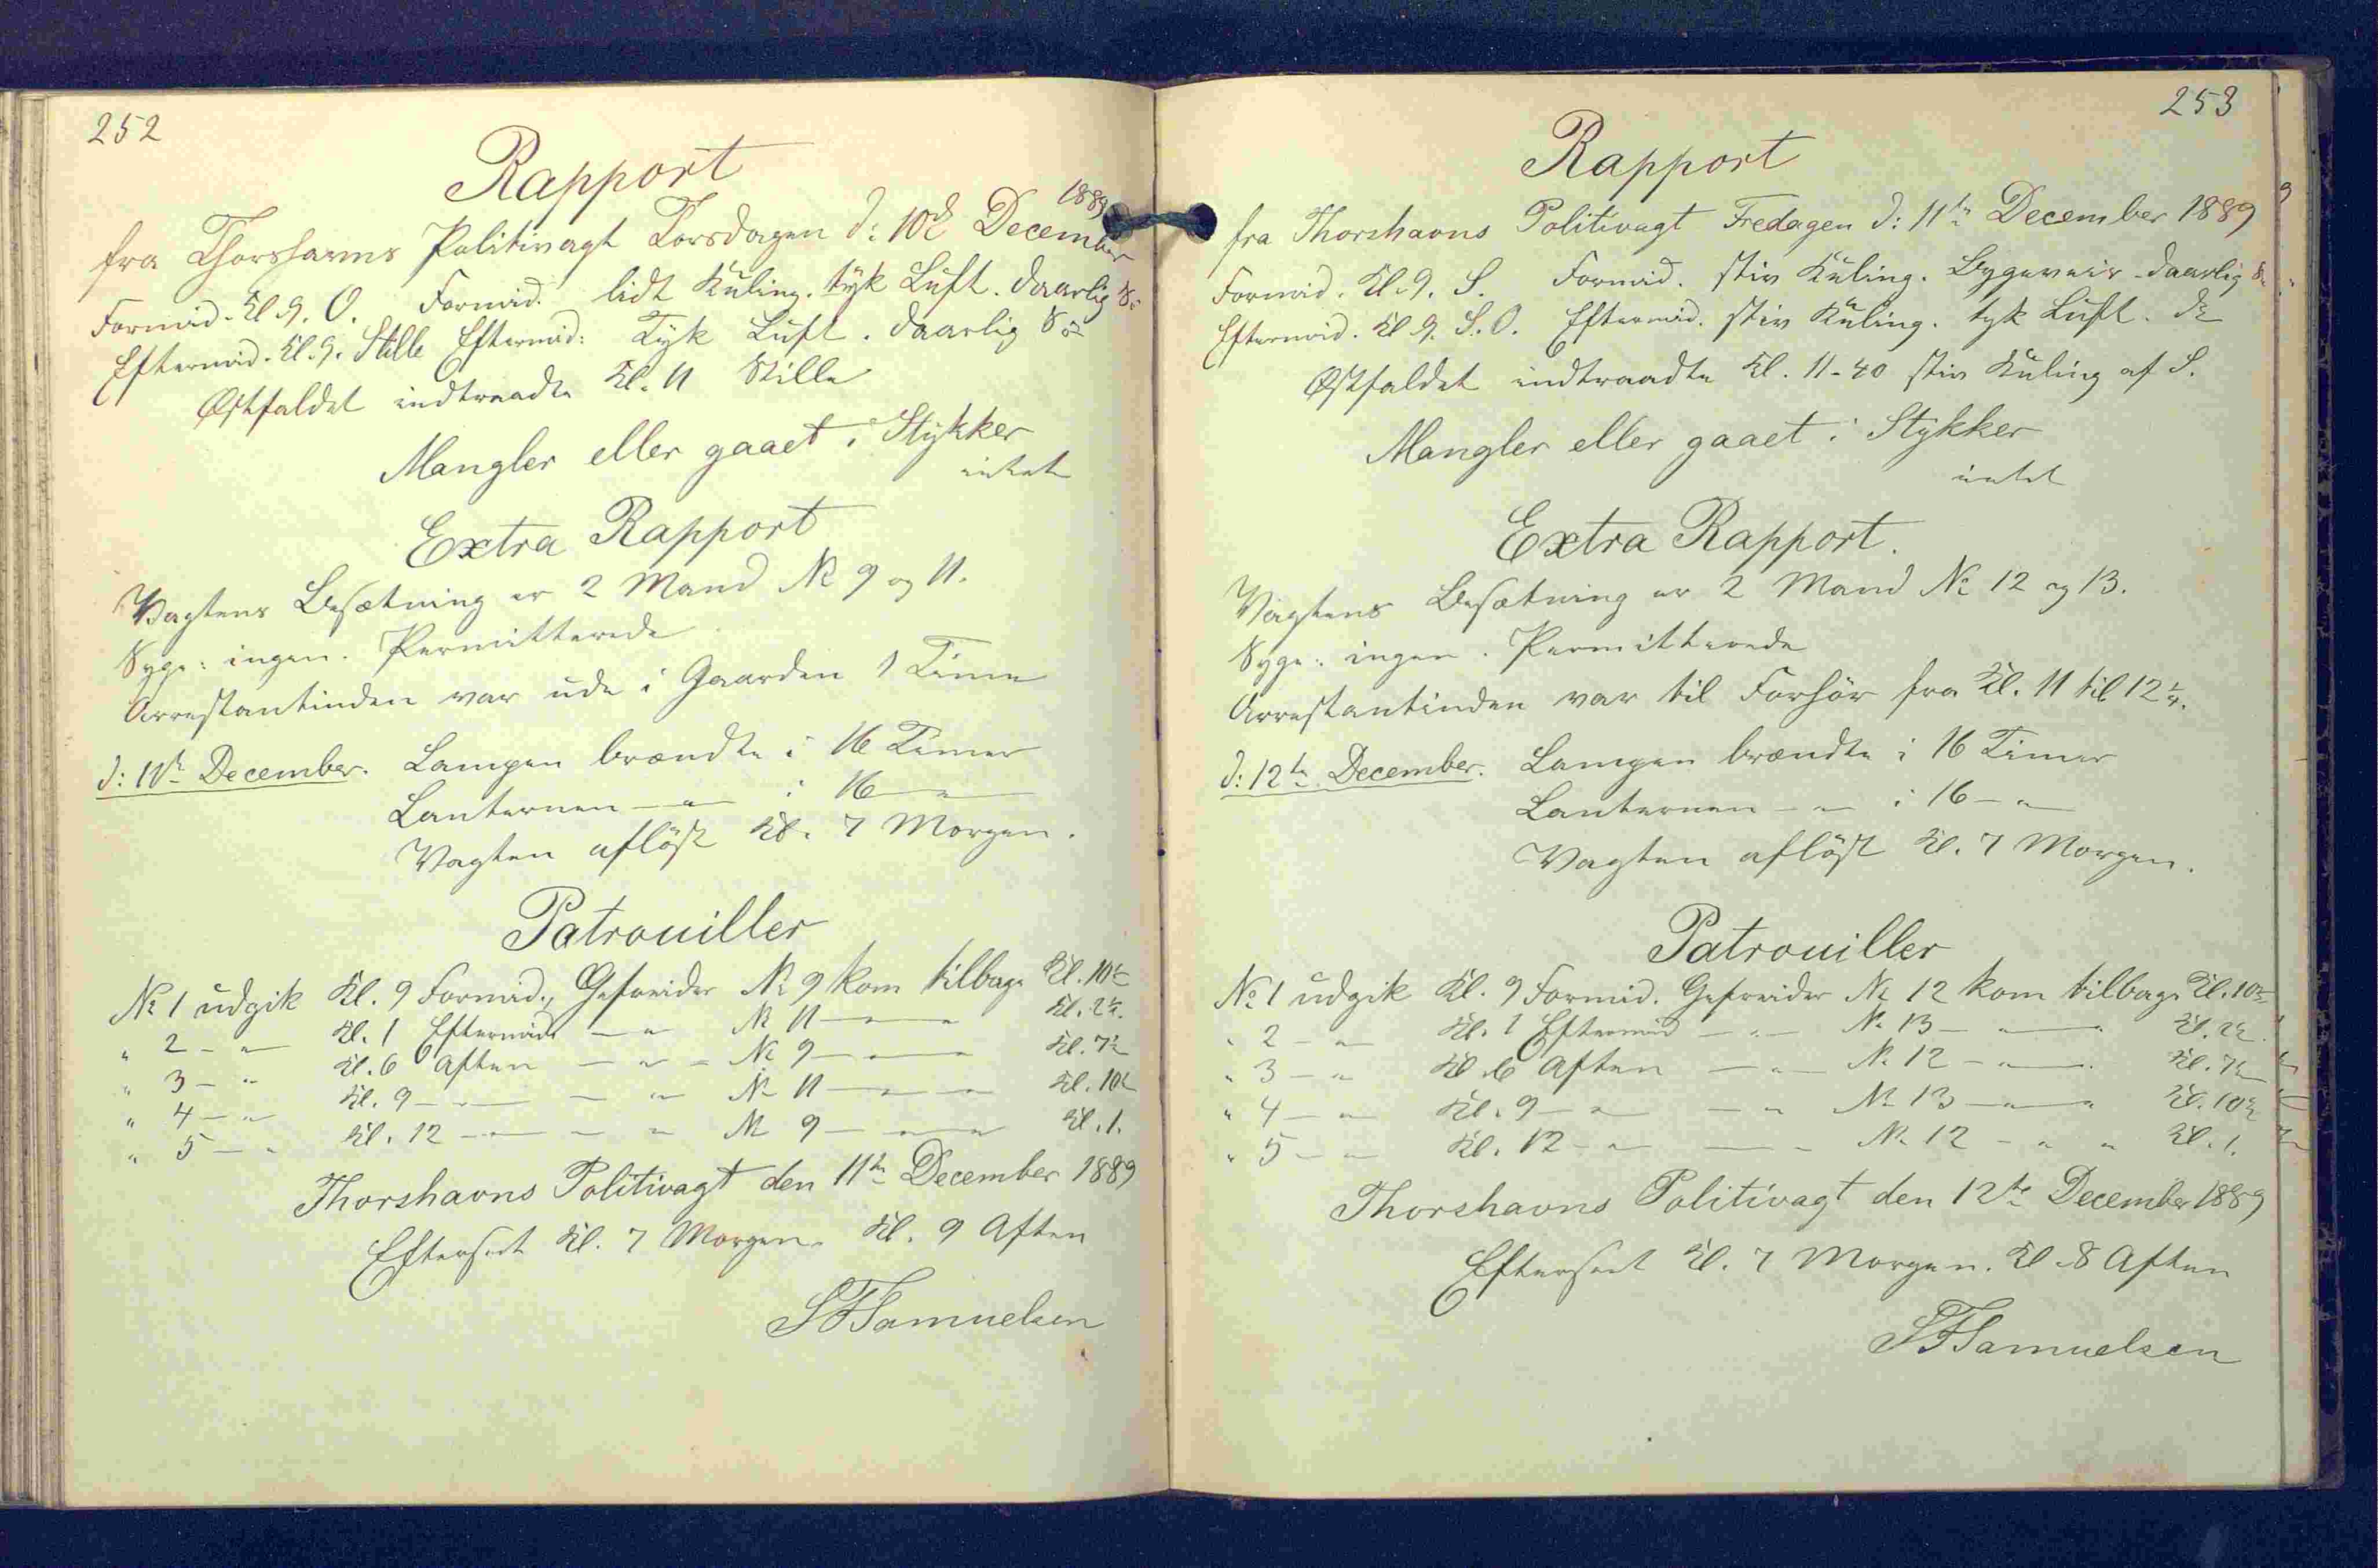 252
Rapport
1889
fra Thorshavns Politivagt Torsdagen d: 10de December
Formid. Kl. 9. O. Formid. lidt Kuling. tyk Luft. daarlig Sö
Eftermid. Kl. 9. Stille Eftermid: Tyk Luft. daarlig Sö
Østfaldet indtraadte Kl. 11 Stille
Mangler eller gaaet i Stykker
intet
Extra Rapport
Vagtens Besætning er 2 Mand No 9 og 11.
Syge: ingen. Permitterede
Arrestantinden var ude i Gaarden 1 Time
d: 11te December. Lampen brændte i 16 Timer
Lanternen — " — i 16 — " —
Vagten aflöst Kl. 7 Morgen.
Patrouiller
No 1 udgik Kl. 9 Formid., Gefreider No 9 kom tilbage Kl. 10½
" 2 — " — Kl. 1 Eftermid. — " No 11 — " — " Kl. 2½.
" 3 — " Kl. 6 Aften — " — No 9 — " — " Kl. 7½
" 4 — " Kl. 9 — " — " No 11 — " — " Kl. 10½
" 5 — " Kl. 12 — " — " No 9 — " — " Kl. 1.
Thorshavns Politivagt den 11te December 1889
Efterseet Kl. 7 Morgen. Kl. 9 Aften
SFSamuelsen
253
Rapport
fra Thorshavns Politivagt Fredagen d: 11te December 1889
Formid. Kl. 9. S. Formid. stiv Kuling. Bygeveir. daarlig S.
Eftermid. Kl. 9. S.O. Eftermid. stiv Kuling. tyk Luft. do
Østfaldet indtraadte Kl. 11-40 stiv Kuling af S.
Mangler eller gaaet i Stykker
intet
Extra Rapport.
Vagtens Besætning er 2 Mand No 12 og 13.
Syge: ingen. Permitterede
Arrestantinden var til Forhör fra Kl. 11 til 12½.
d: 12te December. Lampen brændte i 16 Timer
Lanternen — " — i 16 — " —
Vagten aflöst Kl. 7 Morgen.
Patrouiller
No 1 udgik Kl. 9 Formid. Gefreider No 12 kom tilbage Kl. 10½
" 2 — " Kl. 1 Eftermid — " — No 13 — " — " Kl. 2½
" 3 — " Kl. 6 Aften — " — No 12 — " — Kl. 7½
" 4 — " Kl. 9 — " — " No 13 — " — " Kl. 10½
" 5 — " Kl. 12 — " — " No 12 — " " Kl. 1.
Thorshavns Politivagt den 12te December 1889
Efterseet Kl. 7 Morgen. Kl. 8 Aften
SFSamuelsen